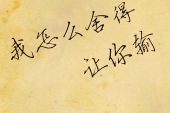 我怎么舍得
让你输